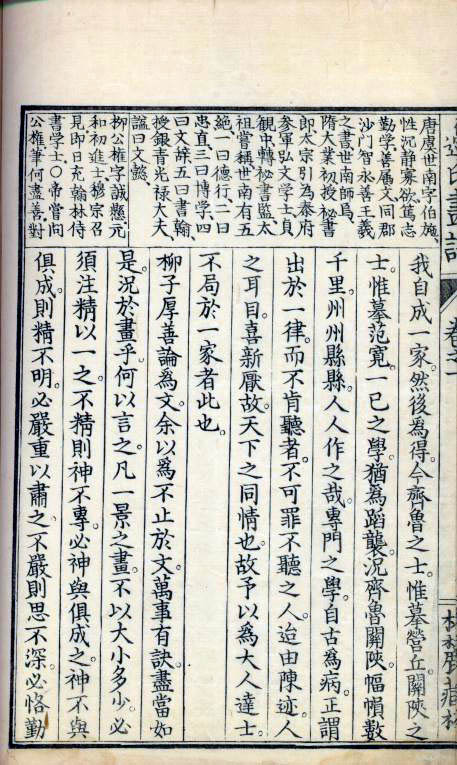 卷之一
唐虞世南字伯施、
性沉静寡欲篤志
勤學善屬文同郡
沙門智永善王羲
之書世南師焉、
隋大業初授秘書
郎太宗引為秦府
參軍弘文學士貞
觀中轉秘書監太
祖嘗稱世南有五
絕一曰德行、二曰
忠直三曰博學、四
曰文辭五曰書翰、
授銀青光禄大夫
謚曰文懿、
柳公權字誠懸元
和初進士穆宗召
見即日充翰林侍
書學士、〇帝嘗問
公權筆何盡善對
我自成一家。然後爲得。今齊魯之士。惟摹營丘。關陝之
士。惟摹范寬。一已之學。猶爲蹈襲。況齊魯關陝。幅幀數
千里。州州縣縣。人人作之哉。專門之學。自古爲病。正謂
出於一律。而不肯聽者。不可罪不聽之人。迨由陳迹。人
之耳目。喜新厭故。天下之同情也。故予以爲大人達士。
不局於一家者此也。
柳子厚善論爲文。余以爲不止於文。萬事有訣。盡當如
是。況於畫乎。何以言之。凡一景之畫。不以大小多少。必
須注精以一之。不精則神不專。必神與俱成之。神不與
俱成。則精不明。必嚴重以肅之。不嚴則思不深。必恪勤